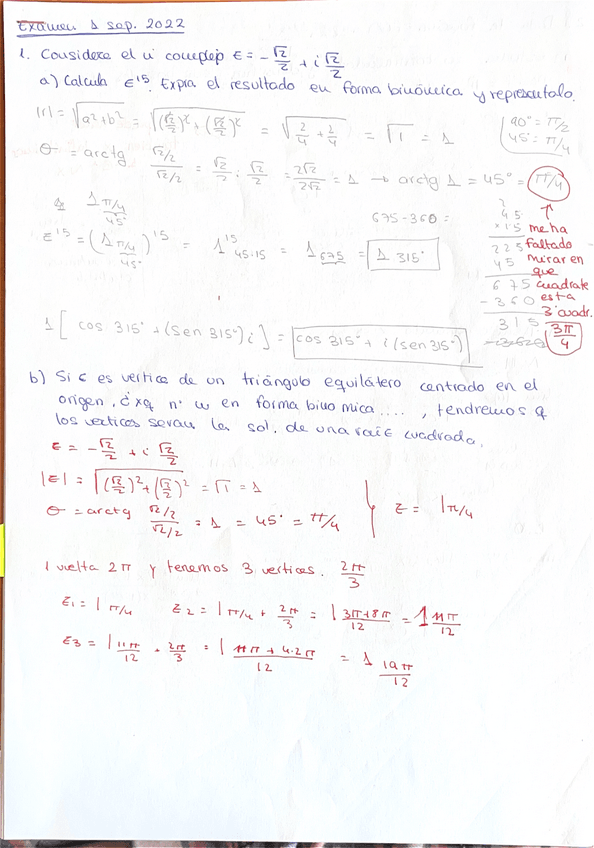 Examen 1 sep. 2022
1. Considere el nº complejo ε = -√2/2 + i √2/2
a) Calcula ε^15. Expra el resultado en forma binómica y represéntalo.
|r| = √(a²+b²) = √((√2/2)² + (√2/2)²) = √(2/4 + 2/4) = √1 = 1
90° = π/2
45° = π/4
θ = arctg (√2/2)/(√2/2) = √2/2 : √2/2 = 2√2/2√2 = 1 → arctg 1 = 45° = π/4
1 π/4
45°
ε^15 = (1 π/4)^15 = 1^15 45·15 = 1 675 = 1 315°
45°
675-360 =
2
45
×15
225
45
675
-360
315
me ha
faltado
mirar en
que
cuadrante
esta
3º cuadr.
3π/4
1 [cos 315° + (sen 315°) i] = cos 315° + i (sen 315°)
b) Si ε es vertice de un triángulo equilátero centrado en el
origen, ¿xq nº w en forma bino mica ...., tendremos q
los vertices serán las sol. de una raiz cuadrada.
ε = -√2/2 + i √2/2
|ε| = √((√2/2)² + (√2/2)²) = √1 = 1
θ = arctg (√2/2)/(√2/2) = 1 = 45° = π/4
z = 1 π/4
1 vuelta 2π y tenemos 3 vertices. 2π/3
z1 = 1 π/4 z2 = 1 π/4 + 2π/3 = 1 (3π+8π)/12 = 1 11π/12
z3 = 1 11π/12 + 2π/3 = 1 (11π + 4·2π)/12 = 1 19π/12